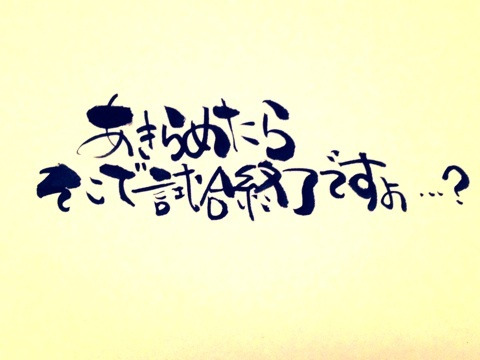 あきらめたら
そこで試合終了ですよ…?